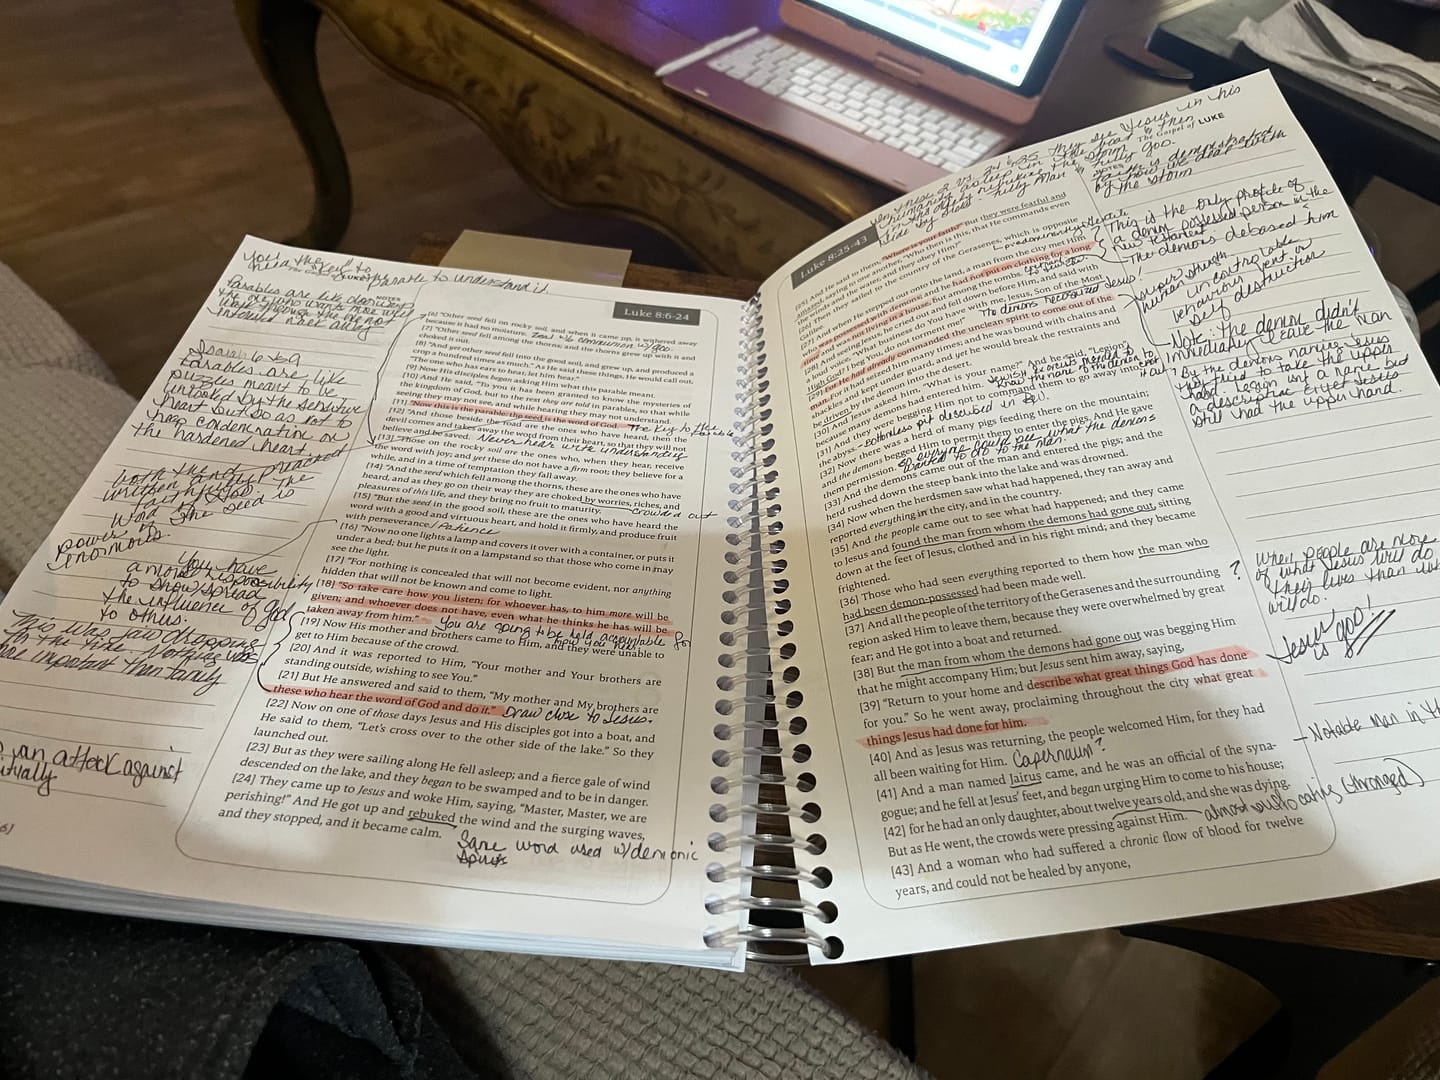 You have the
hear
parable to understand it.
Parables are like
the one who wants more will
work through the
interested
Isaiah 6 v 9
Parables are like
puzzles meant to be
unlocked by the sensitive
heart but so as not to
heap condemnation on
the hardened heart
both the and preached
written
word of God. The
seed is
power
enormous.
You have
a
to show/spread
the influence of God
to others.
This was jaw dropping
in the time. Nothing was
more important than family
an attack against
Luke 8:6-24
[6] "Other seed fell on rocky soil, and when it came up, it withered away
because it had no moisture.
[7] "Other seed fell among the thorns; and the thorns grew up with it and
choked it out.
[8] "And yet other seed fell into the good soil, and grew up, and produced a
crop a hundred times as much." As He said these things, He would call out,
"The one who has ears to hear, let him hear."
[9] Now His disciples began asking Him what this parable meant.
[10] And He said, "To you it has been granted to know the mysteries of
the kingdom of God, but to the rest they are told in parables, so that while
seeing they may not see, and while hearing they may not understand.
[11] "Now this is the parable: the seed is the word of God. The key to the parable
[12] "And those beside the road are the ones who have heard, then the
devil comes and takes away the word from their heart, so that they will not
believe and be saved. Never hear with understanding
[13] "Those on the rocky soil are the ones who, when they hear, receive
the word with joy; and yet these do not have a firm root; they believe for a
while, and in a time of temptation they fall away.
[14] "And the seed which fell among the thorns, these are the ones who have
heard, and as they go on their way they are choked by worries, riches, and
pleasures of this life, and they bring no fruit to maturity. crowd out
[15] "But the seed in the good soil, these are the ones who have heard the
word with a good and virtuous heart, and hold it firmly, and produce fruit
with perseverance. / Patience
[16] "Now no one lights a lamp and covers it over with a container, or puts it
under a bed; but he puts it on a lampstand so that those who come in may
see the light.
[17] "For nothing is concealed that will not become evident, nor anything
hidden that will not be known and come to light.
[18] "So take care how you listen; for whoever has, to him more will be
given; and whoever does not have, even what he thinks he has will be
taken away from him." You are going to be held accountable for
how you hear.
[19] Now His mother and brothers came to Him, and they were unable to
get to Him because of the crowd.
[20] And it was reported to Him, "Your mother and Your brothers are
standing outside, wishing to see You."
[21] But He answered and said to them, "My mother and My brothers are
these who hear the word of God and do it." Draw close to Jesus.
[22] Now on one of those days Jesus and His disciples got into a boat, and
He said to them, "Let's cross over to the other side of the lake." So they
launched out.
[23] But as they were sailing along He fell asleep; and a fierce gale of wind
descended on the lake, and they began to be swamped and to be in danger.
[24] They came up to Jesus and woke Him, saying, "Master, Master, we are
perishing!" And He got up and rebuked the wind and the surging waves,
and they stopped, and it became calm.
Same word used w/demonic
spirits
The Gospel of LUKE
NOTES
Faith is demonstrated
by how we deal with
the storm
Luke 8:25-43
[25] And He said to them, "Where is your faith?" But they were fearful and
amazed, saying to one another, "Who then is this, that He commands even
the winds and the water, and they obey Him?"
[26] Then they sailed to the country of the Gerasenes, which is opposite
Galilee.
[27] And when He stepped out onto the land, a man from the city met Him
who was possessed with demons; and he had not put on clothing for a long
time and was not living in a house, but among the tombs.
[28] And seeing Jesus, he cried out and fell down before Him, and said with
a loud voice, "What business do You have with me, Jesus, Son of the Most
High God? I beg You, do not torment me!" The demons recognized Jesus!
[29] For He had already commanded the unclean spirit to come out of the
man. For it had seized him many times; and he was bound with chains and
shackles and kept under guard, and yet he would break the restraints and
be driven by the demon into the desert.
[30] And Jesus asked him, "What is your name?" And he said, "Legion";
because many demons had entered him.
[31] And they were begging Him not to command them to go away into
the abyss. - Bottomless pit described in Rev.
[32] Now there was a herd of many pigs feeding there on the mountain;
and the demons begged Him to permit them to enter the pigs. And He gave
them permission. So everyone could see what the demons
wanted to do to the man.
[33] And the demons came out of the man and entered the pigs; and the
herd rushed down the steep bank into the lake and was drowned.
[34] Now when the herdsmen saw what had happened, they ran away and
reported everything in the city, and in the country.
[35] And the people came out to see what had happened; and they came
to Jesus and found the man from whom the demons had gone out, sitting
down at the feet of Jesus, clothed and in his right mind; and they became
frightened.
[36] Those who had seen everything reported to them how the man who
had been demon-possessed had been made well.
[37] And all the people of the territory of the Gerasenes and the surrounding
region asked Him to leave them, because they were overwhelmed by great
fear; and He got into a boat and returned.
[38] But the man from whom the demons had gone out was begging Him
that he might accompany Him; but Jesus sent him away, saying,
[39] "Return to your home and describe what great things God has done
for you." So he went away, proclaiming throughout the city what great
things Jesus had done for him.
[40] And as Jesus was returning, the people welcomed Him, for they had
all been waiting for Him. Capernaum?
[41] And a man named Jairus came, and he was an official of the syna-
gogue; and he fell at Jesus' feet, and began urging Him to come to his house;
[42] for he had an only daughter, about twelve years old, and she was dying.
But as He went, the crowds were pressing against Him. almost suffocating (thronged)
[43] And a woman who had suffered a chronic flow of blood for twelve
years, and could not be healed by anyone,
This is the only profile of
a demon possessed person in the
New Testament
The demons debased him
super strength
uncontrollable
behaviour
self destruction
Note: The demon didn't
immediately leave the man
By the demons naming Jesus
they tried to take the upper
hand. Legion isn't a name but
a descriptor yet Jesus
still had the upper hand.
? When people are more
of what Jesus will do
their lives than
will do.
Jesus is God!
- Notable man in